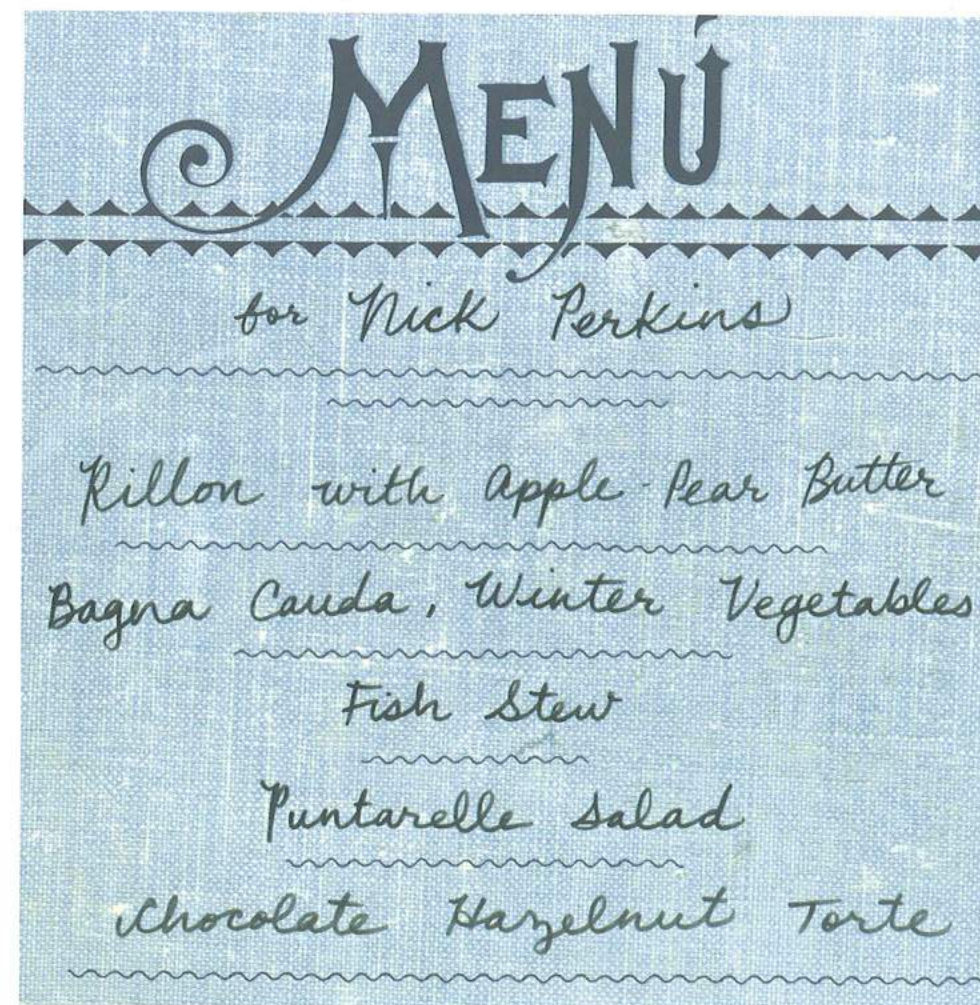 MENÚ
for Nick Perkins
Rillon with Apple-Pear Butter
Bagna Cauda, Winter Vegetables
Fish Stew
Puntarelle Salad
Chocolate Hazelnut Torte